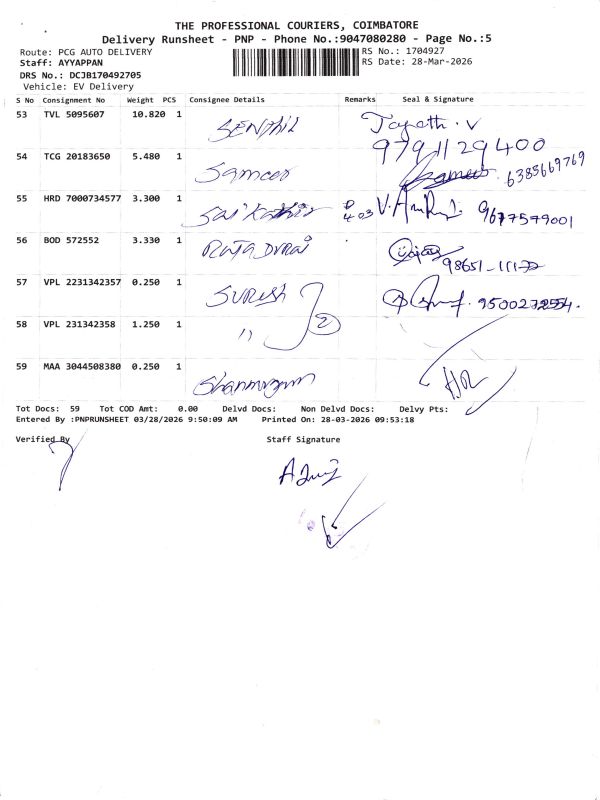 THE PROFESSIONAL COURIERS, COIMBATORE
Delivery Runsheet - PNP - Phone No.:9047080280 - Page No.:5
Route: PCG AUTO DELIVERY RS No.: 1704927
Staff: AYYAPPAN RS Date: 28-Mar-2026
DRS No.: DCJB170492705
Vehicle: EV Delivery
S No Consignment No Weight PCS Consignee Details Remarks Seal & Signature
53 TVL 5095607 10.820 1 SENTHIL
9791129400
54 TCG 20183650 5.480 1 Sameer 6385669769
55 HRD 7000734577 3.300 1 Saikathir 9677579001
56 BOD 572552 3.330 1 RAJADURAI
57 VPL 2231342357 0.250 1 SURESH
58 VPL 231342358 1.250 1 " 2
59 MAA 3044508380 0.250 1 Shanmugam
Tot Docs: 59 Tot COD Amt: 0.00 Delvd Docs: Non Delvd Docs: Delvy Pts:
Entered By :PNPRUNSHEET 03/28/2026 9:50:09 AM Printed On: 28-03-2026 09:53:18
Verified By Staff Signature